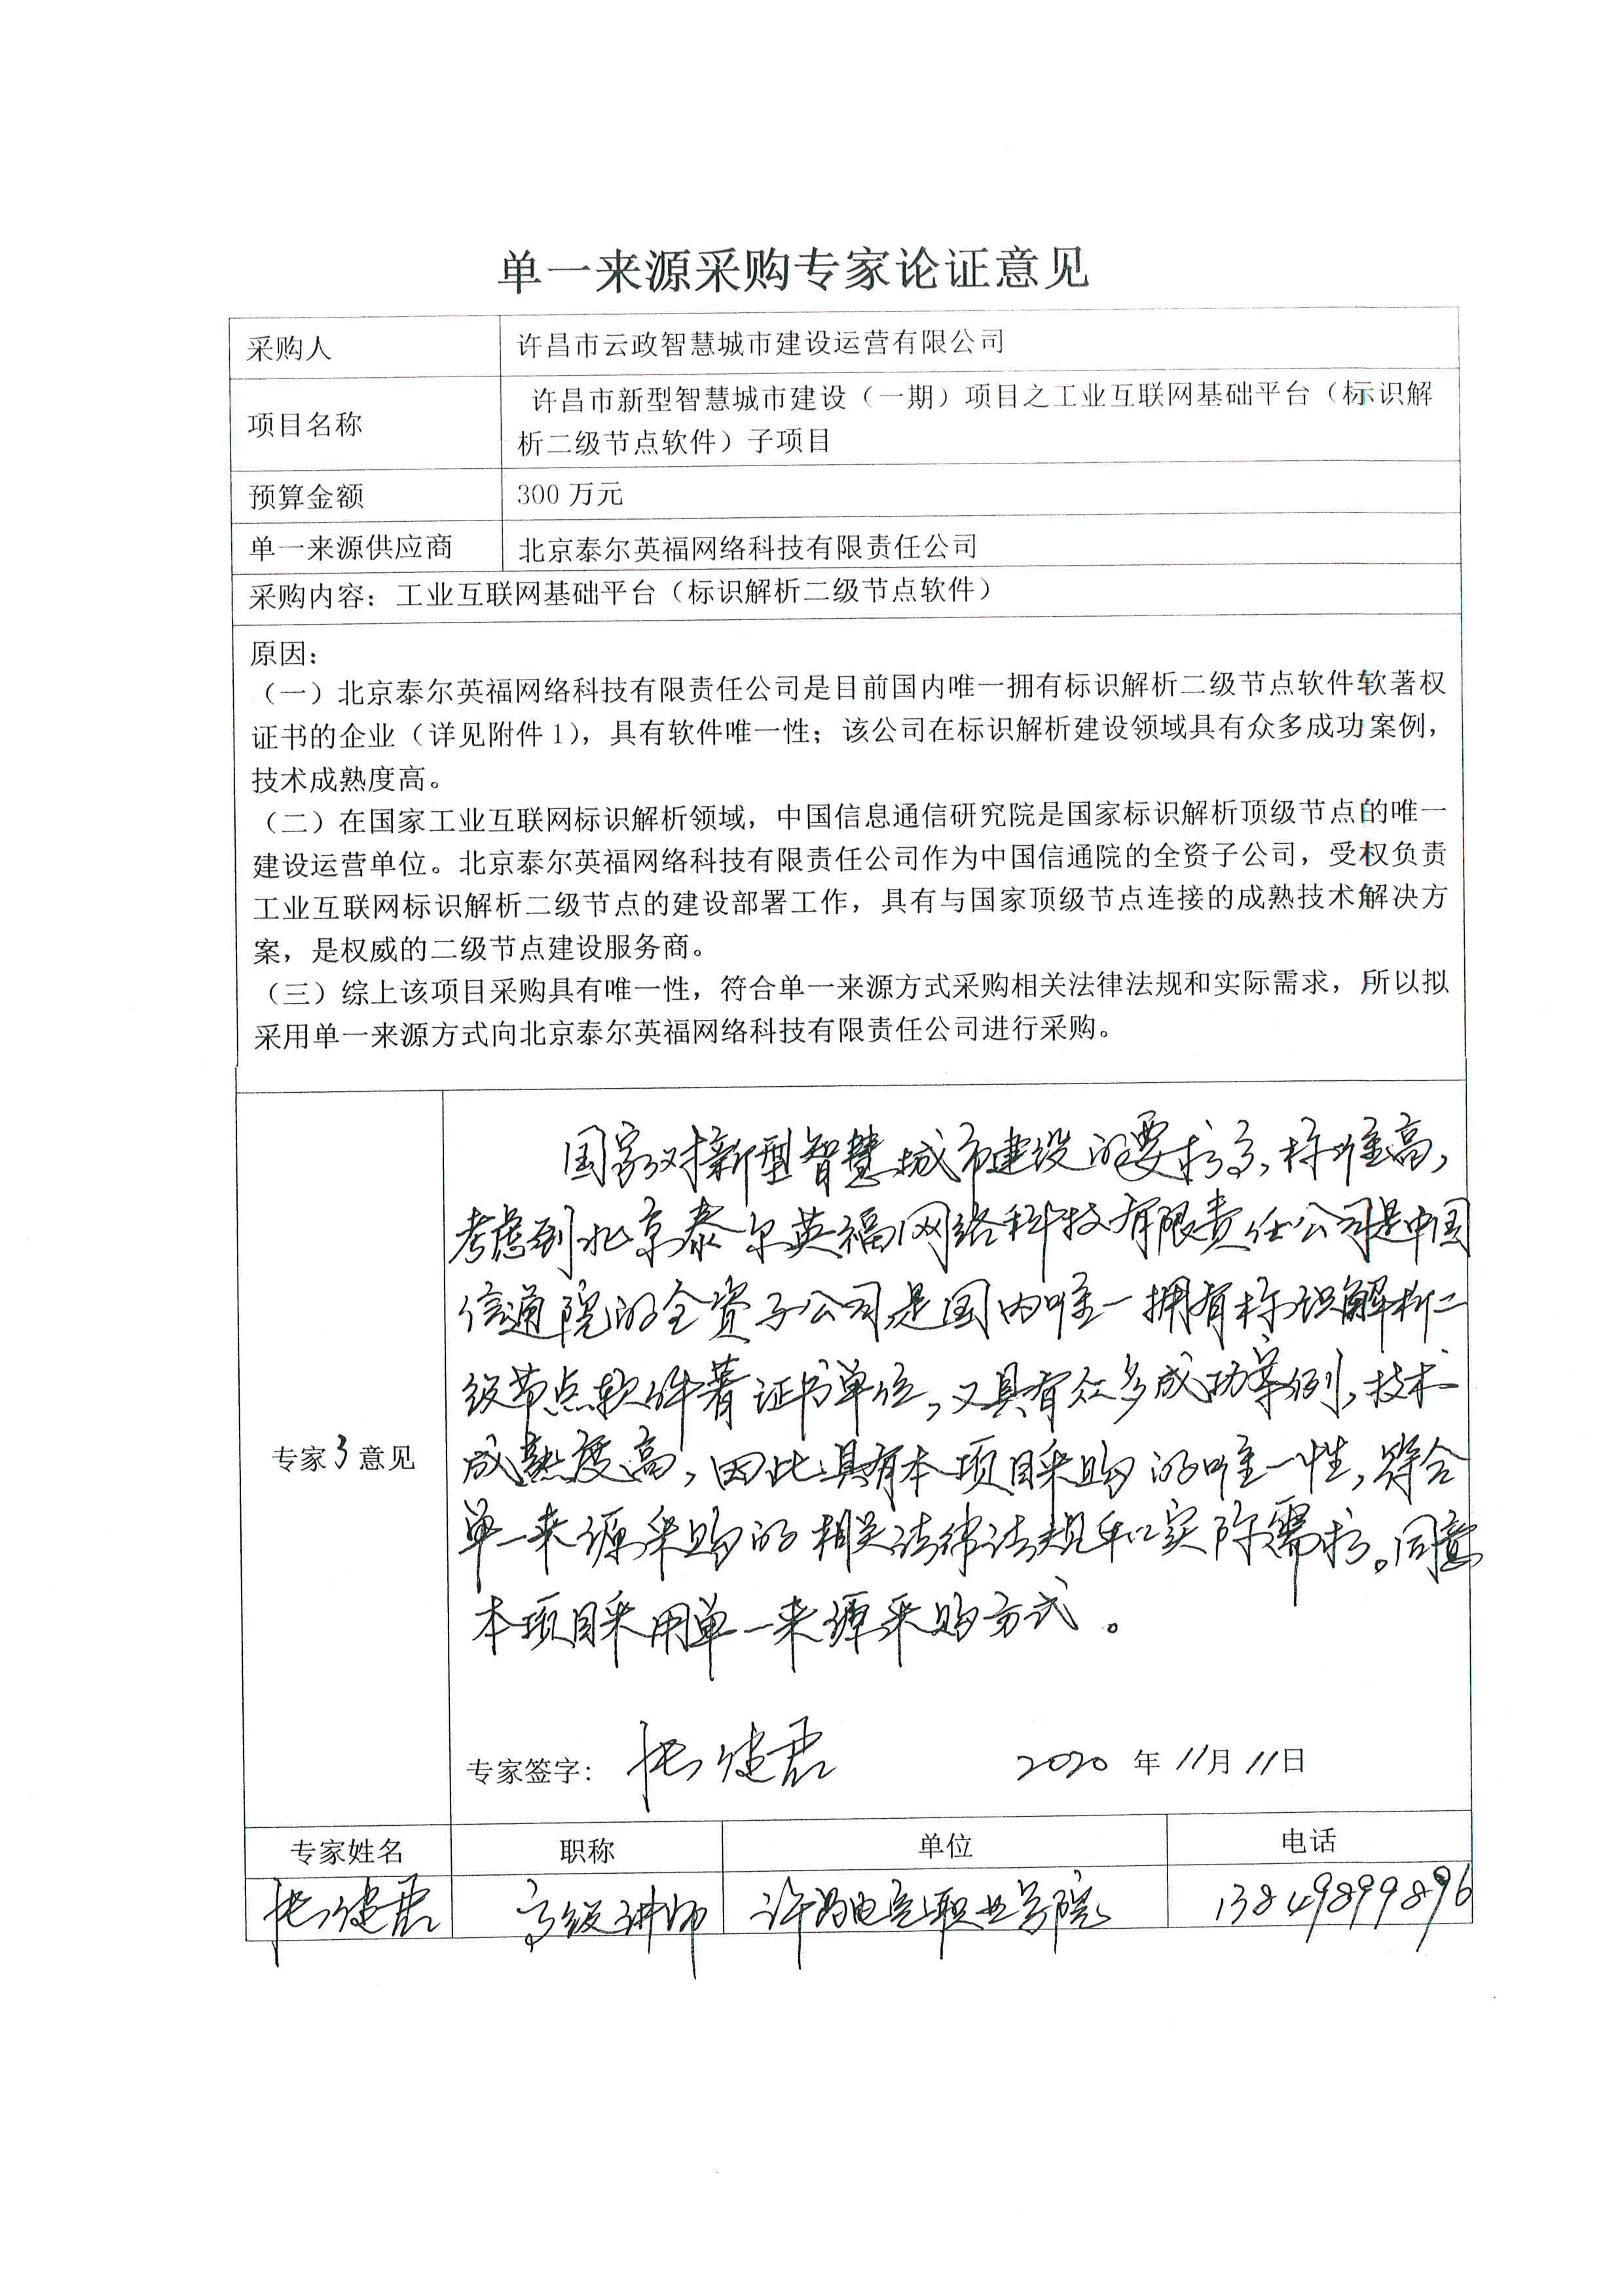 单一来源采购专家论证意见
采购人
许昌市云政智慧城市建设运营有限公司
项目名称
许昌市新型智慧城市建设（一期）项目之工业互联网基础平台（标识解
析二级节点软件）子项目
预算金额
300 万元
单一来源供应商
北京泰尔英福网络科技有限责任公司
采购内容：工业互联网基础平台（标识解析二级节点软件）
原因：
（一）北京泰尔英福网络科技有限责任公司是目前国内唯一拥有标识解析二级节点软件软著权
证书的企业（详见附件1），具有软件唯一性；该公司在标识解析建设领域具有众多成功案例，
技术成熟度高。
（二）在国家工业互联网标识解析领域，中国信息通信研究院是国家标识解析顶级节点的唯一
建设运营单位。北京泰尔英福网络科技有限责任公司作为中国信通院的全资子公司，受权负责
工业互联网标识解析二级节点的建设部署工作，具有与国家顶级节点连接的成熟技术解决方
案，是权威的二级节点建设服务商。
（三）综上该项目采购具有唯一性，符合单一来源方式采购相关法律法规和实际需求，所以拟
采用单一来源方式向北京泰尔英福网络科技有限责任公司进行采购。
专家3意见
国家对新型智慧城市建设的要求高，标准高，
考虑到北京泰尔英福网络科技有限责任公司是中国
信通院的全资子公司是国内唯一拥有标识解析二
级节点软件著证书单位，又具有众多成功案例，技术
成熟度高，因此具有本项目采购的唯一性，符合
单一来源采购的相关法律法规和实际需求。同意
本项目采用单一来源采购方式。
专家签字：张健君 2020 年 11月 11日
专家姓名 职称 单位 电话
张健君 高级讲师 许昌电气职业学院 13849899896